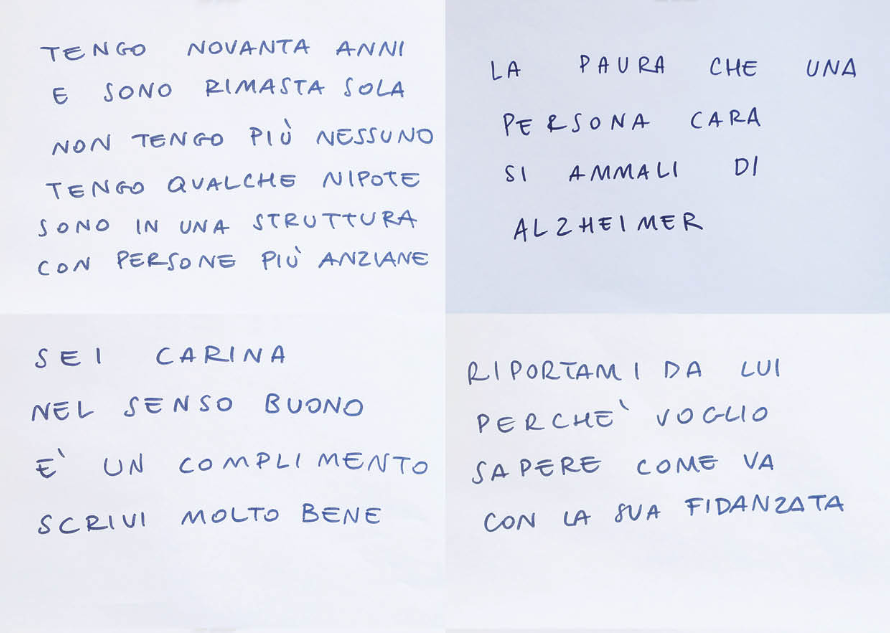 TENGO NOVANTA ANNI
E SONO RIMASTA SOLA
NON TENGO PIÙ NESSUNO
TENGO QUALCHE NIPOTE
SONO IN UNA STRUTTURA
CON PERSONE PIÙ ANZIANE
LA PAURA CHE UNA
PERSONA CARA
SI AMMALI DI
ALZHEIMER
SEI CARINA
NEL SENSO BUONO
E' UN COMPLIMENTO
SCRIVI MOLTO BENE
RIPORTAMI DA LUI
PERCHE' VOGLIO
SAPERE COME VA
CON LA SUA FIDANZATA